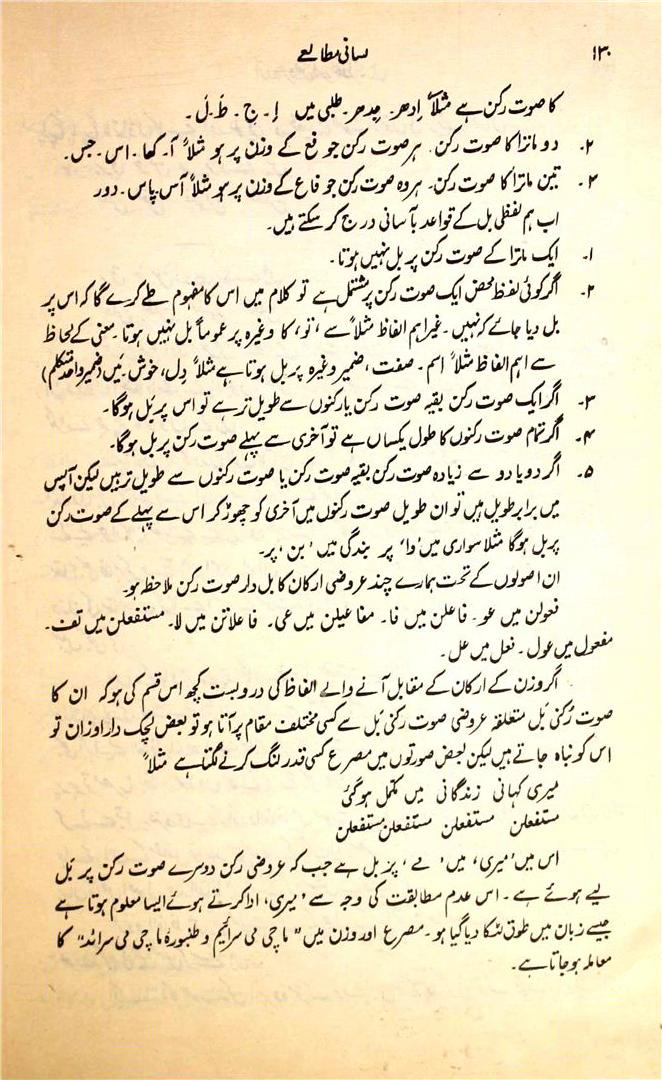 ۱۳۰ لسانی مطالعے
کا صوت رکن ہے مثلاً اِدھر۔ جِدھر۔ طلبی میں اِ۔ جِ۔ طَ۔ لَ۔
۲۔ دو ماترا کا صوت رکن۔ ہر صوت رکن جو فع کے وزن پر ہو مثلاً آ۔ کھا۔ اس۔ جس۔
۳۔ تین ماترا کا صوت رکن۔ ہر وہ صوت رکن جو فاع کے وزن پر ہو مثلاً آس۔ پاس۔ دور
اب ہم لفظی بل کے قواعد بآسانی درج کر سکتے ہیں۔
۱۔ ایک ماترا کے صوت رکن پر بل نہیں ہوتا۔
۲۔ اگر کوئی لفظ محض ایک صوت رکن پر مشتمل ہے تو کلام میں اس کا مفہوم طے کرے گا کہ اس پر
بل دیا جائے کہ نہیں۔ غیر اہم الفاظ مثلاً سے، تو، کا وغیرہ پر عموماً بل نہیں ہوتا۔ معنی کے لحاظ
سے اہم الفاظ مثلاً اسم۔ صفت، ضمیر وغیرہ پر بل ہوتا ہے مثلاً دِل، خوش۔ مَیں (ضمیر واحد متکلم)
۳۔ اگر ایک صوت رکن بقیہ صوت رکن یا رکنوں سے طویل تر ہے تو اس پر بل ہوگا۔
۴۔ اگر تمام صوت رکنوں کا طول یکساں ہے تو آخری سے پہلے صوت رکن پر بل ہوگا۔
۵۔ اگر دو یا دو سے زیادہ صوت رکن بقیہ صوت رکن یا صوت رکنوں سے طویل تر ہیں لیکن آپس
میں برابر طویل ہیں تو ان طویل صوت رکنوں میں آخری کو چھوڑ کر اس سے پہلے کے صوت رکن
پر بل ہوگا مثلاً سواری میں 'وا' پر بندگی میں 'بن' پر۔
ان اصولوں کے تحت ہمارے چند عروضی ارکان کا بل دار صوت رکن ملاحظہ ہو۔
فعولن میں عو۔ فاعلن میں فا۔ مفاعیلن میں عی۔ فاعلاتن میں لا۔ مستفعلن میں تف۔
مفعول میں عول۔ نعل میں عل۔
اگر وزن کے ارکان کے مقابل آنے والے الفاظ کی در و بست کچھ اس قسم کی ہو کہ ان کا
صوت رُکنی بَل متعلقہ عروضی صوت رکنی بَل سے کسی مختلف مقام پر آتا ہو تو بعض لچک دار اوزان تو
اس کو نباہ جاتے ہیں لیکن بعض صورتوں میں مصرع کسی قدر لنگ کرنے لگتا ہے مثلاً
میری کہانی زندگانی میں مکمل ہو گئی
مستفعلن مستفعلن مستفعلن مستفعلن
اس میں 'میری' میں 'مے' پر بل ہے جب کہ عروضی رکن دوسرے صوت رکن پر بَل
لیے ہوئے ہے۔ اس عدم مطابقت کی وجہ سے 'میری' ادا کرتے ہوئے ایسا معلوم ہوتا ہے
جیسے زبان میں طوق لٹکا دیا گیا ہو۔ مصرع اور وزن میں "ما چی می سرائیم و طنبورۂ ما چی می سراند" کا
معاملہ ہو جاتا ہے۔